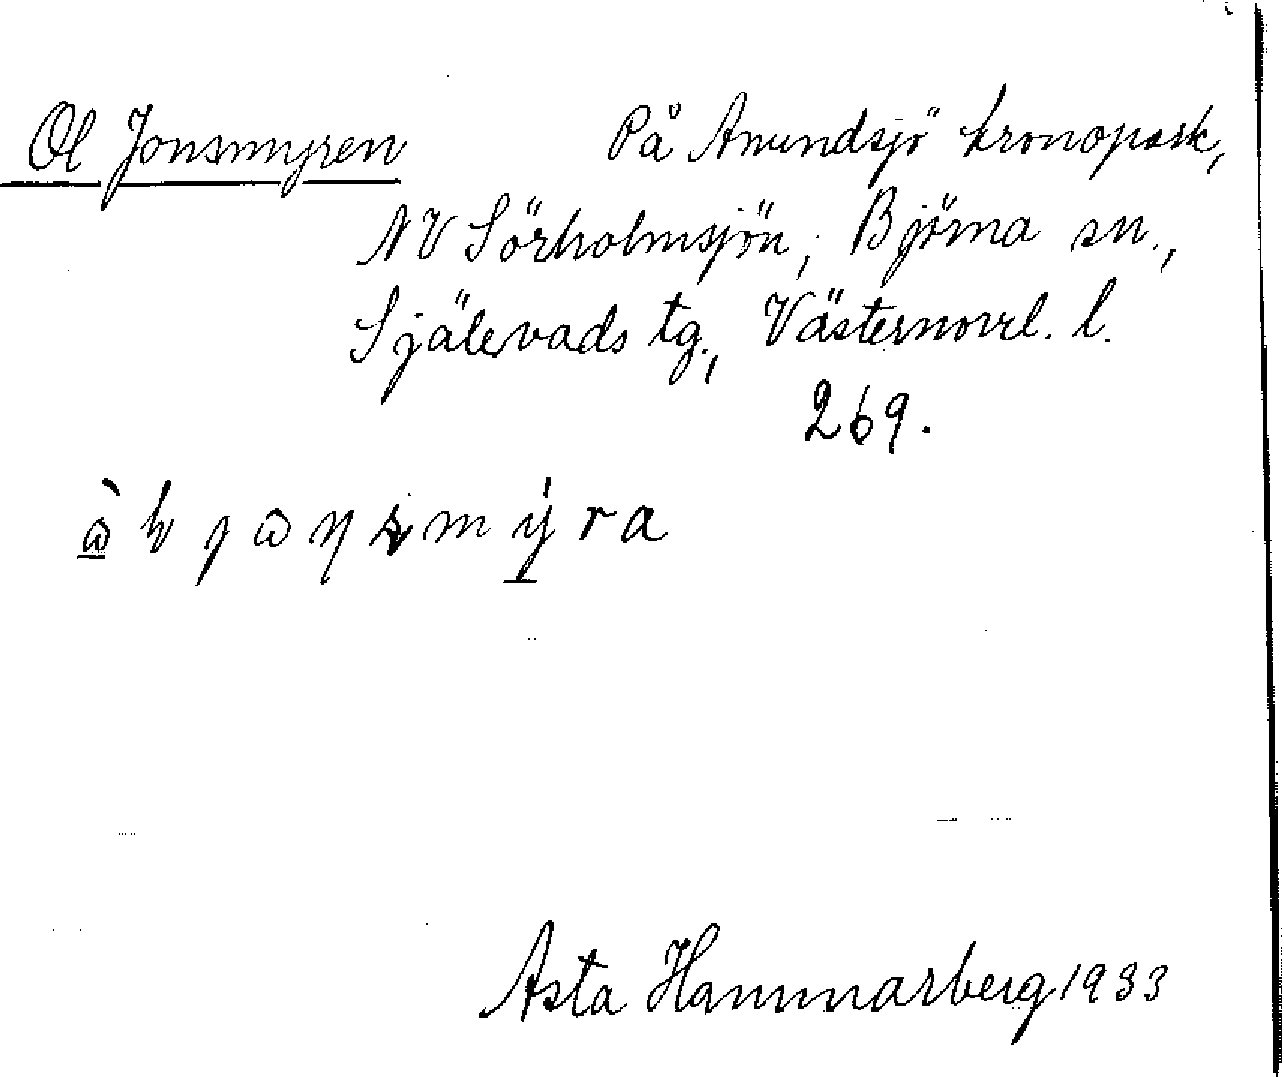 Ol Jonsmyren På Anundsjö kronopark,
NV Sörholmsjön, Björna sn.,
Själevads tg., Västernorrl. l.
269.
Asta Hammarberg 1933